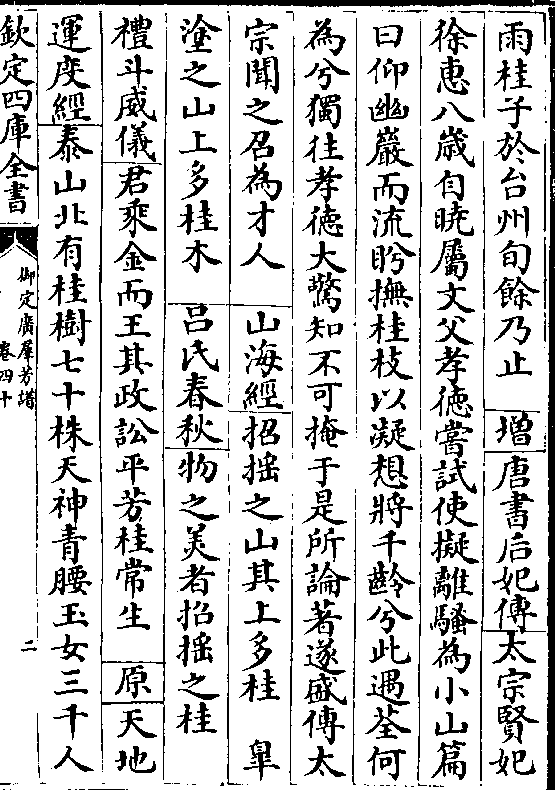 雨桂子於台州旬餘乃止 增 唐書后妃傳 太宗賢妃
徐惠八歲自曉屬文父孝德嘗試使擬離騷為小山篇
曰仰幽巖而流盼撫桂枝以凝想將千齡兮此遇荃何
為兮獨往孝德大驚知不可掩于是所論著遂盛傳太
宗聞之召為才人 山海經 招揺之山其上多桂 皐
塗之山上多桂木 呂氏春秋 物之美者招揺之桂
禮斗威儀 君乘金而王其政訟平芳桂常生 原 天地
運度經 泰山北有桂樹七十株天神青腰玉女三千人
欽定四庫全書
御定廣羣芳譜
卷四十
二